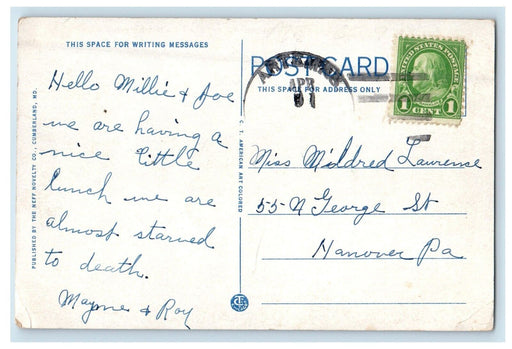 THIS SPACE FOR WRITING MESSAGES
Hello Millie & Joe
we are having a
nice little
lunch we are
almost starved
to death.
Mayme & Roy
PUBLISHED BY THE NEFF NOVELTY CO., CUMBERLAND, MD.
C. T. AMERICAN ART COLORED
POST CARD
THIS SPACE FOR ADDRESS ONLY
APR
UNITED STATES POSTAGE
1 CENT 1
Miss Mildred Laurence
55 N George St
Hanover Pa